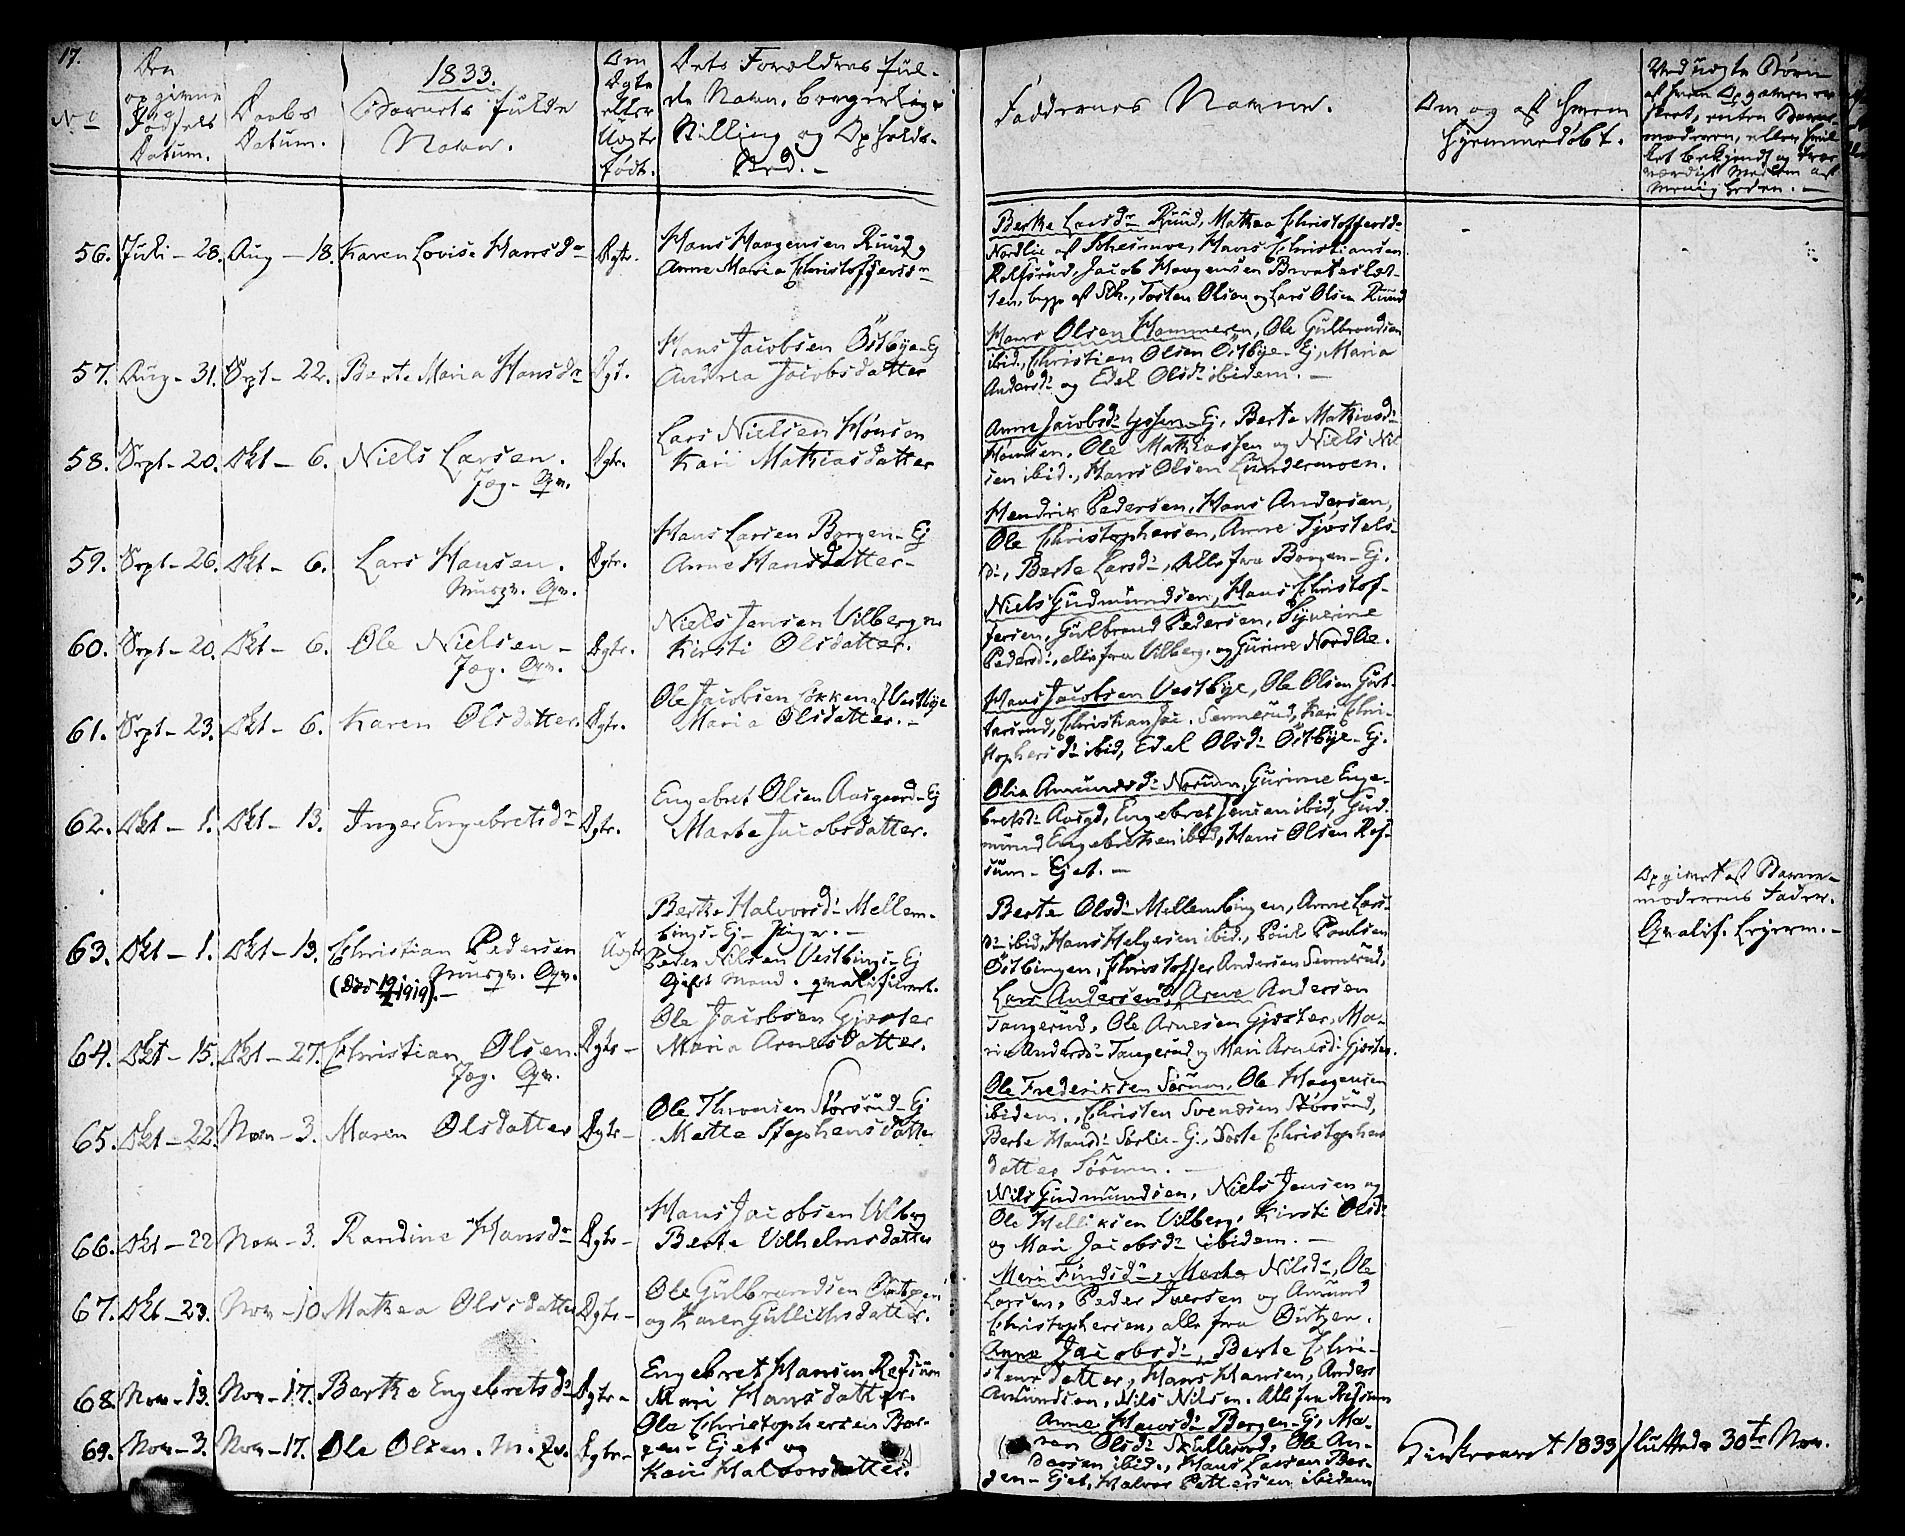 17.
No
Den opgivne Fødsels Datum.
Daabs Datum.
1833.
Barnets fulde Navn.
Om Ægte eller Uægte født.
Dets Forældres ful-
de Navn, borgerlige
Stilling og Opholds-
sted. -
Faddernes Navne.
Om og af hvem
hjemmedøbt.
Ved uægte Børn
af hvem Opgaven er
skeet, enten Barne-
moderen, eller hvil-
ket bekjendt og troe-
værdigt Medlem af
Menigheden. -
56. Juli - 28. Aug - 18. Karen Lovise Hansdr Ægte.
Hans Haagensen Ruud og
Anne Maria Christoffersdr
Berthe Larsdr Ruud, Mathea Christoffersdr
Nordlie af Hans Christiansen
Rolfsrud, Jacob Haagensen
ten, Tosten Olsen og Lars Olsen Ruud
57. Aug - 31. Sept - 22. Berte Maria Hansdr Ægt.
Hans Jacobsen Östbye-Ej
Andrea Jacobsdatter
Hans Olsen Hammeren, Ole Gulbrandsen
ibid., Christian Olsen Östbye-Ej, Maria
Andersdr og Edel Olsdr ibidem. -
58. Sept - 20. Okt - 6. Niels Larsen. Ægte.
Jæg. Qv.
Lars Nielsen Hönsen
Kari Mathiasdatter
Anne Jacobsdr Ej, Berte Mathiasdr
Hönsen, Ole Mathiassen og Niels Nil
sen ibid., Hans Olsen Lundermoen.
59. Sept - 26. Okt - 6. Lars Hansen. Ægte.
Musqv. Qv.
Hans Larsen Borgen-Ej
Anne Hansdatter-
Hendrik Pedersen, Hans Andersen,
Ole Christophersen, Anne Tjöstels-
dr, Berte Larsdr, Alle fra Borgen-Ej.
60. Sept - 20. Okt - 6. Ole Nielsen - Ægte.
Jæg. Qv.
Niels Jensen Vilberg
Kirsti Olsdatter.
Niels Gudmundsen, Hans Christof-
fersen, Gulbrand Pedersen,
Pedersdr, alle fra Vilberg, og Gurine Nordlie.
61. Sept - 23. Okt - 6. Karen Olsdatter. Ægte.
Ole Jacobsen af Vestbye
Maria Olsdatter. -
Hans Jacobsen Vestbye, Ole Olsen
Christian Jac. Semmerud, Kari Chri-
stophersdr ibid, Edel Olsdr Östbye-Ej.
62. Okt - 1. Okt - 13. Inger Engebretsdr Ægte.
Engebret Olsen Aasgaard-Ej
Marte Jacobsdatter.
Olia Amundsdr Norum, Gurine Enge-
bretsdr Aasgd, Engebret Jensen ibid, Gud-
mund Engebretsen ibid, Hans Olsen Ref-
sum-Ejet. -
63. Okt - 1. Okt - 13. Christian Pedersen Uægte
Musqv. Qv.
(Död 19/2 1919). -
Berthe Halvorsdr Mellem-
bings-Ej- Pige. -
Peder Nilsen Vestbings-Ej
Gift Mand. qualificeret.
Berte Olsdr Mellembingen, Anne Lars-
dr ibid, Hans Helgesen ibid., Poul Poulsen
Östbingen, Christoffer Andersen Semmerud,
Opgivet af Barne-
moderens Fader.
Qvalif. Leierm. -
64. Okt - 15. Okt - 27. Christian Olsen. Ægte -
Jæg. Qv.
Ole Jacobsen Gjöster
Maria Arnesdatter.
Lars Andersen, Arne Andersen
Tangerud, Ole Arnesen Gjöster, Ma-
ria Andersdr Tangerud og Mari Arnesdr Gjöster.
65. Okt - 22. Nov - 3. Maren Olsdatter Ægte -
Ole Thronsen Störsrud-Ej
Mette Stephensdatter
Ole Frederiksen Sörum, Ole Haagensen
ibidem., Christen Svendsen Störsrud,
Berte Hansdr Sörlie-Ej, Dorte Christophers
datter Sörum. -
66. Okt - 22 Nov - 3. Randine Hansdr Ægte -
Hans Jacobsen Vilberg
Berte Vilhelmsdatter
Nils Gudmundsen, Niels Jensen og
Ole Helliksen Vilberg, Kirsti Olsdr
og Mari Jacobsdr ibidem. -
67. Okt - 23. Nov - 10. Mathea Olsdatter Ægte -
Ole Gulbrandsen
og Karen Gullichsdatter.
Mari Findsdr, Marthe Nilsdr, Ole
Larsen, Peder Iversen og Amund
Christophersen, alle fra
68. Nov - 13. Nov - 17. Berthe Engebretsdr Ægte -
Engebret Hansen Refsum
Mari Hansdatter.
Anne Jacobsdr, Berte Chri-
stensdatter, Hans Hansen, Anders
Amundsen, Nils Nilsen. Alle fra Refsum
69. Nov - 3. Nov - 17. Ole Olsen. M. Qv. Ægte -
Ole Christophersen Bor-
gen-Ejet og
Kari Halvorsdatter.
Anne Hansdr Borgen-Ej, Ma-
ren Olsdr Skullerud, Ole An-
dersen ibid., Hans Larsen Bor-
gen-Ejet, Halvor Pettersen ibidem
Kirkeaaret 1833 sluttede 30te Nov.